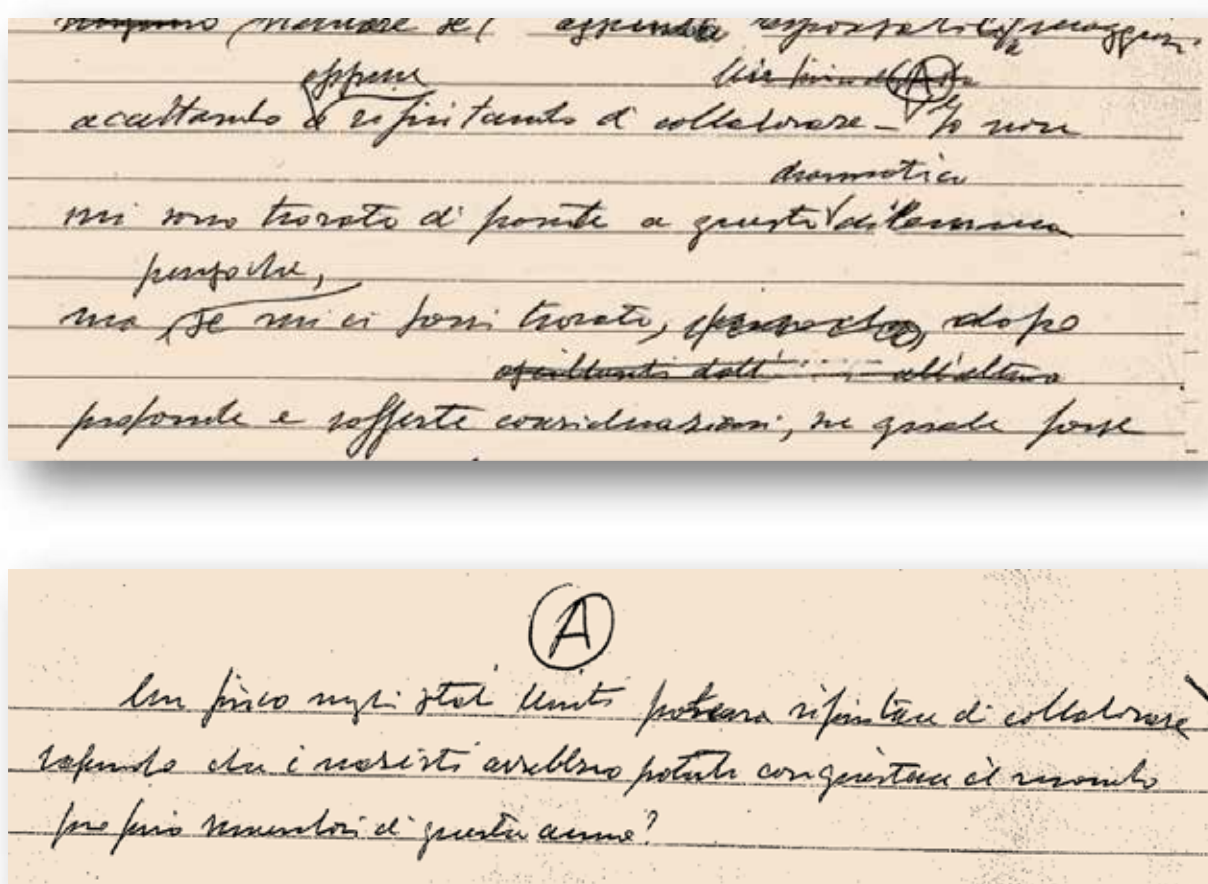 assumete responsabilità maggiori,
oppure
Ⓐ
accettando o rifiutando di collaborare – Io non
drammatico
mi sono trovato di fronte a questo dilemma
penso che,
ma se mi ci fossi trovato, penso che, dopo
all'altezza
profonde e sofferte considerazioni, ne quale forse
Ⓐ
Un fisico negli Stati Uniti poteva rifiutare di collaborare
sapendo che i nazisti avrebbero potuto conquistare il mondo
di questa arma?